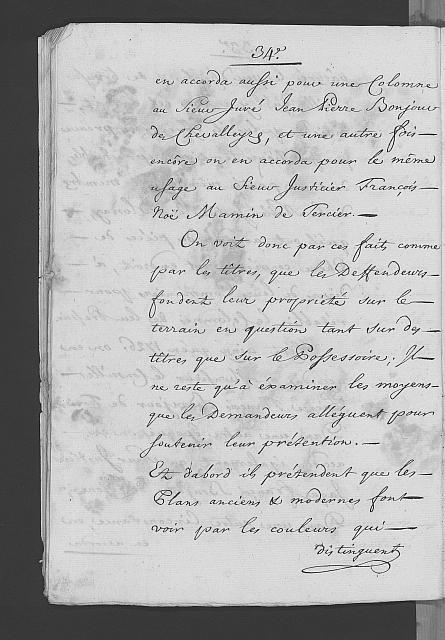 34.e
en accorda aussi pour une Colomne
au Sieur Juré Jean Pierre Bonjour
de Chevalleyre, et une autre fois
encôre on en accorda pour le même
usage au Sieur Justicier François
Noë Mamin de Tercier. —
On voit donc par ces faits, comme
par les titres, que les Deffendeurs
fondent leur proprieté sur le
terrein en question tant sur des
titres que sur le Possessoire; Il
ne reste qu'à éxaminer les moyens
que les Demandeurs alléguent pour
soutenir leur prétention. —
Et dabord ils prétendent que les
Plans anciens & modernes font
voir par les couleurs qui
distinguent